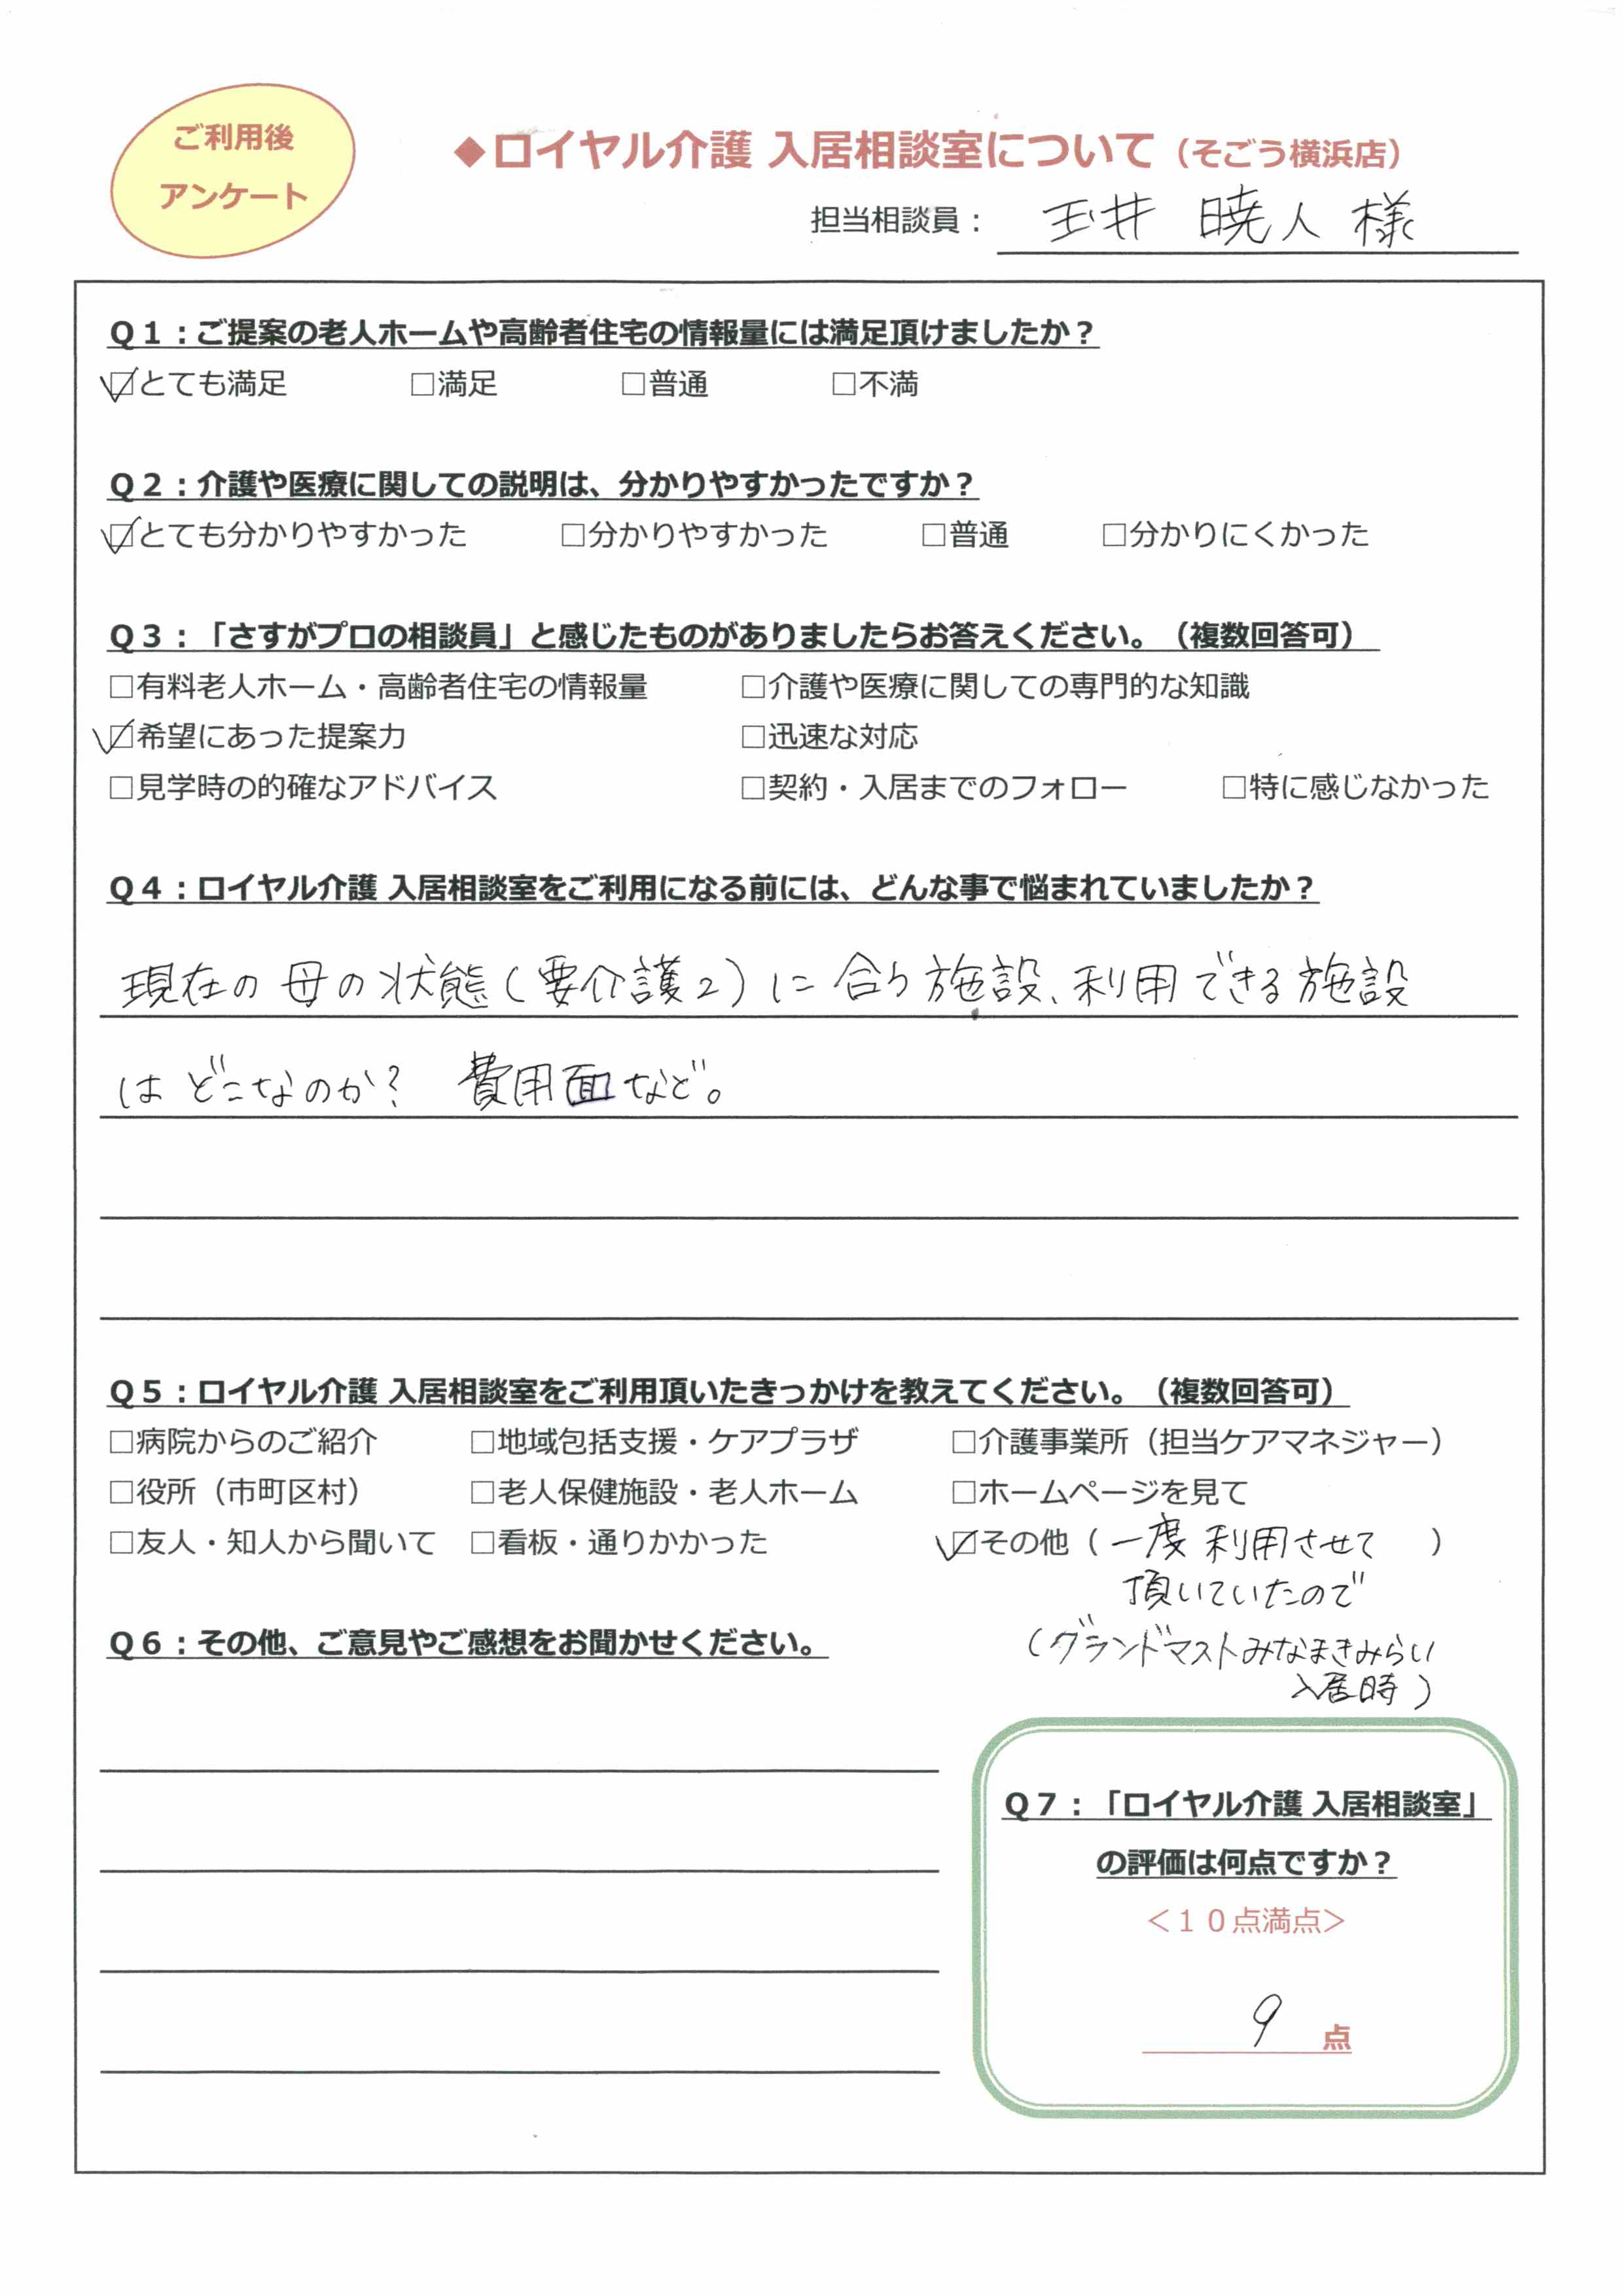 ご利用後
アンケート
◆ロイヤル介護 入居相談室について（そごう横浜店）
担当相談員： 玉井 暁人 様
Q1：ご提案の老人ホームや高齢者住宅の情報量には満足頂けましたか？
☑とても満足 □満足 □普通 □不満
Q2：介護や医療に関しての説明は、分かりやすかったですか？
☑とても分かりやすかった □分かりやすかった □普通 □分かりにくかった
Q3：「さすがプロの相談員」と感じたものがありましたらお答えください。（複数回答可）
□有料老人ホーム・高齢者住宅の情報量 □介護や医療に関しての専門的な知識
☑希望にあった提案力 □迅速な対応
□見学時の的確なアドバイス □契約・入居までのフォロー □特に感じなかった
Q4：ロイヤル介護 入居相談室をご利用になる前には、どんな事で悩まれていましたか？
現在の母の状態（要介護2）に合う施設、利用できる施設
はどこなのか？ 費用面など。
Q5：ロイヤル介護 入居相談室をご利用頂いたきっかけを教えてください。（複数回答可）
□病院からのご紹介 □地域包括支援・ケアプラザ □介護事業所（担当ケアマネジャー）
□役所（市町区村） □老人保健施設・老人ホーム □ホームページを見て
□友人・知人から聞いて □看板・通りかかった ☑その他（一度利用させて ）
頂いていたので
（グランドマストみなまきみらい
入居時）
Q6：その他、ご意見やご感想をお聞かせください。
Q7：「ロイヤル介護 入居相談室」
の評価は何点ですか？
＜１０点満点＞
9 点